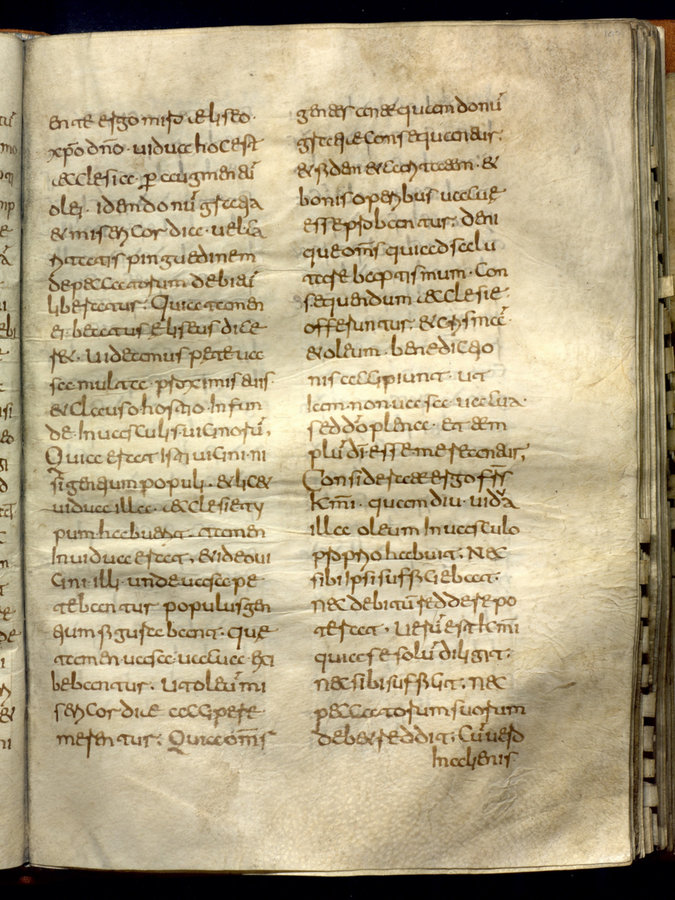 ente ergo miso eliseo·
xp̄o dn̄o· uiduae hoc est
aecclesiae· ꝑ augmentū
olei· idem donū gratiae
et misericordiae· uel ca
ritatis pinguedinem
de peccatorum debitū
liberatur: Quia tamen
ei· beatus eliseus dice
ret· uideamus pete ua
sa mutate· proximis tuis·
et clauso hostio· infun
de· in uasculis· uicinorū·
Quia erat isti uicini· ni
si gentium populi· et licet
uidua illa· aecclesiae ty
pum habuerit· tamen
in uidua erat· et ideo ui
cini illi· unde uasa pe
tebantur populus gen
tium figurabant· que
tamen uasa uacua· exi
bebantur· ut oleū mi
sericordiae accipere
merentur: Quia om̄is
gentes antequam donū
gratiae consequatur:
et fidem et caritatem· et
bonis operibus uacuae
esse probantur: deni
que om̄s qui ad salu
tare baptismum· con
sequendum· aecclesie
offeruntur: et crisma·
et oleum· benedictio
nis accipiunt· ut
iam· non uasa· uacua·
sed dō plena· et tem
plū dī esse mereatur;
Considerate ergo frr̄s
km̄i· quamdiu· uidua
illa oleum in uasculo
proprio habuit· nec
sibi ipsi sufficiebat:
nec debitū reddere po
terat· uerū est km̄i
qui a se solū diligit:
nec sibi sufficit: nec
peccatorum suorum
debet reddit: Cū uero
in alienis